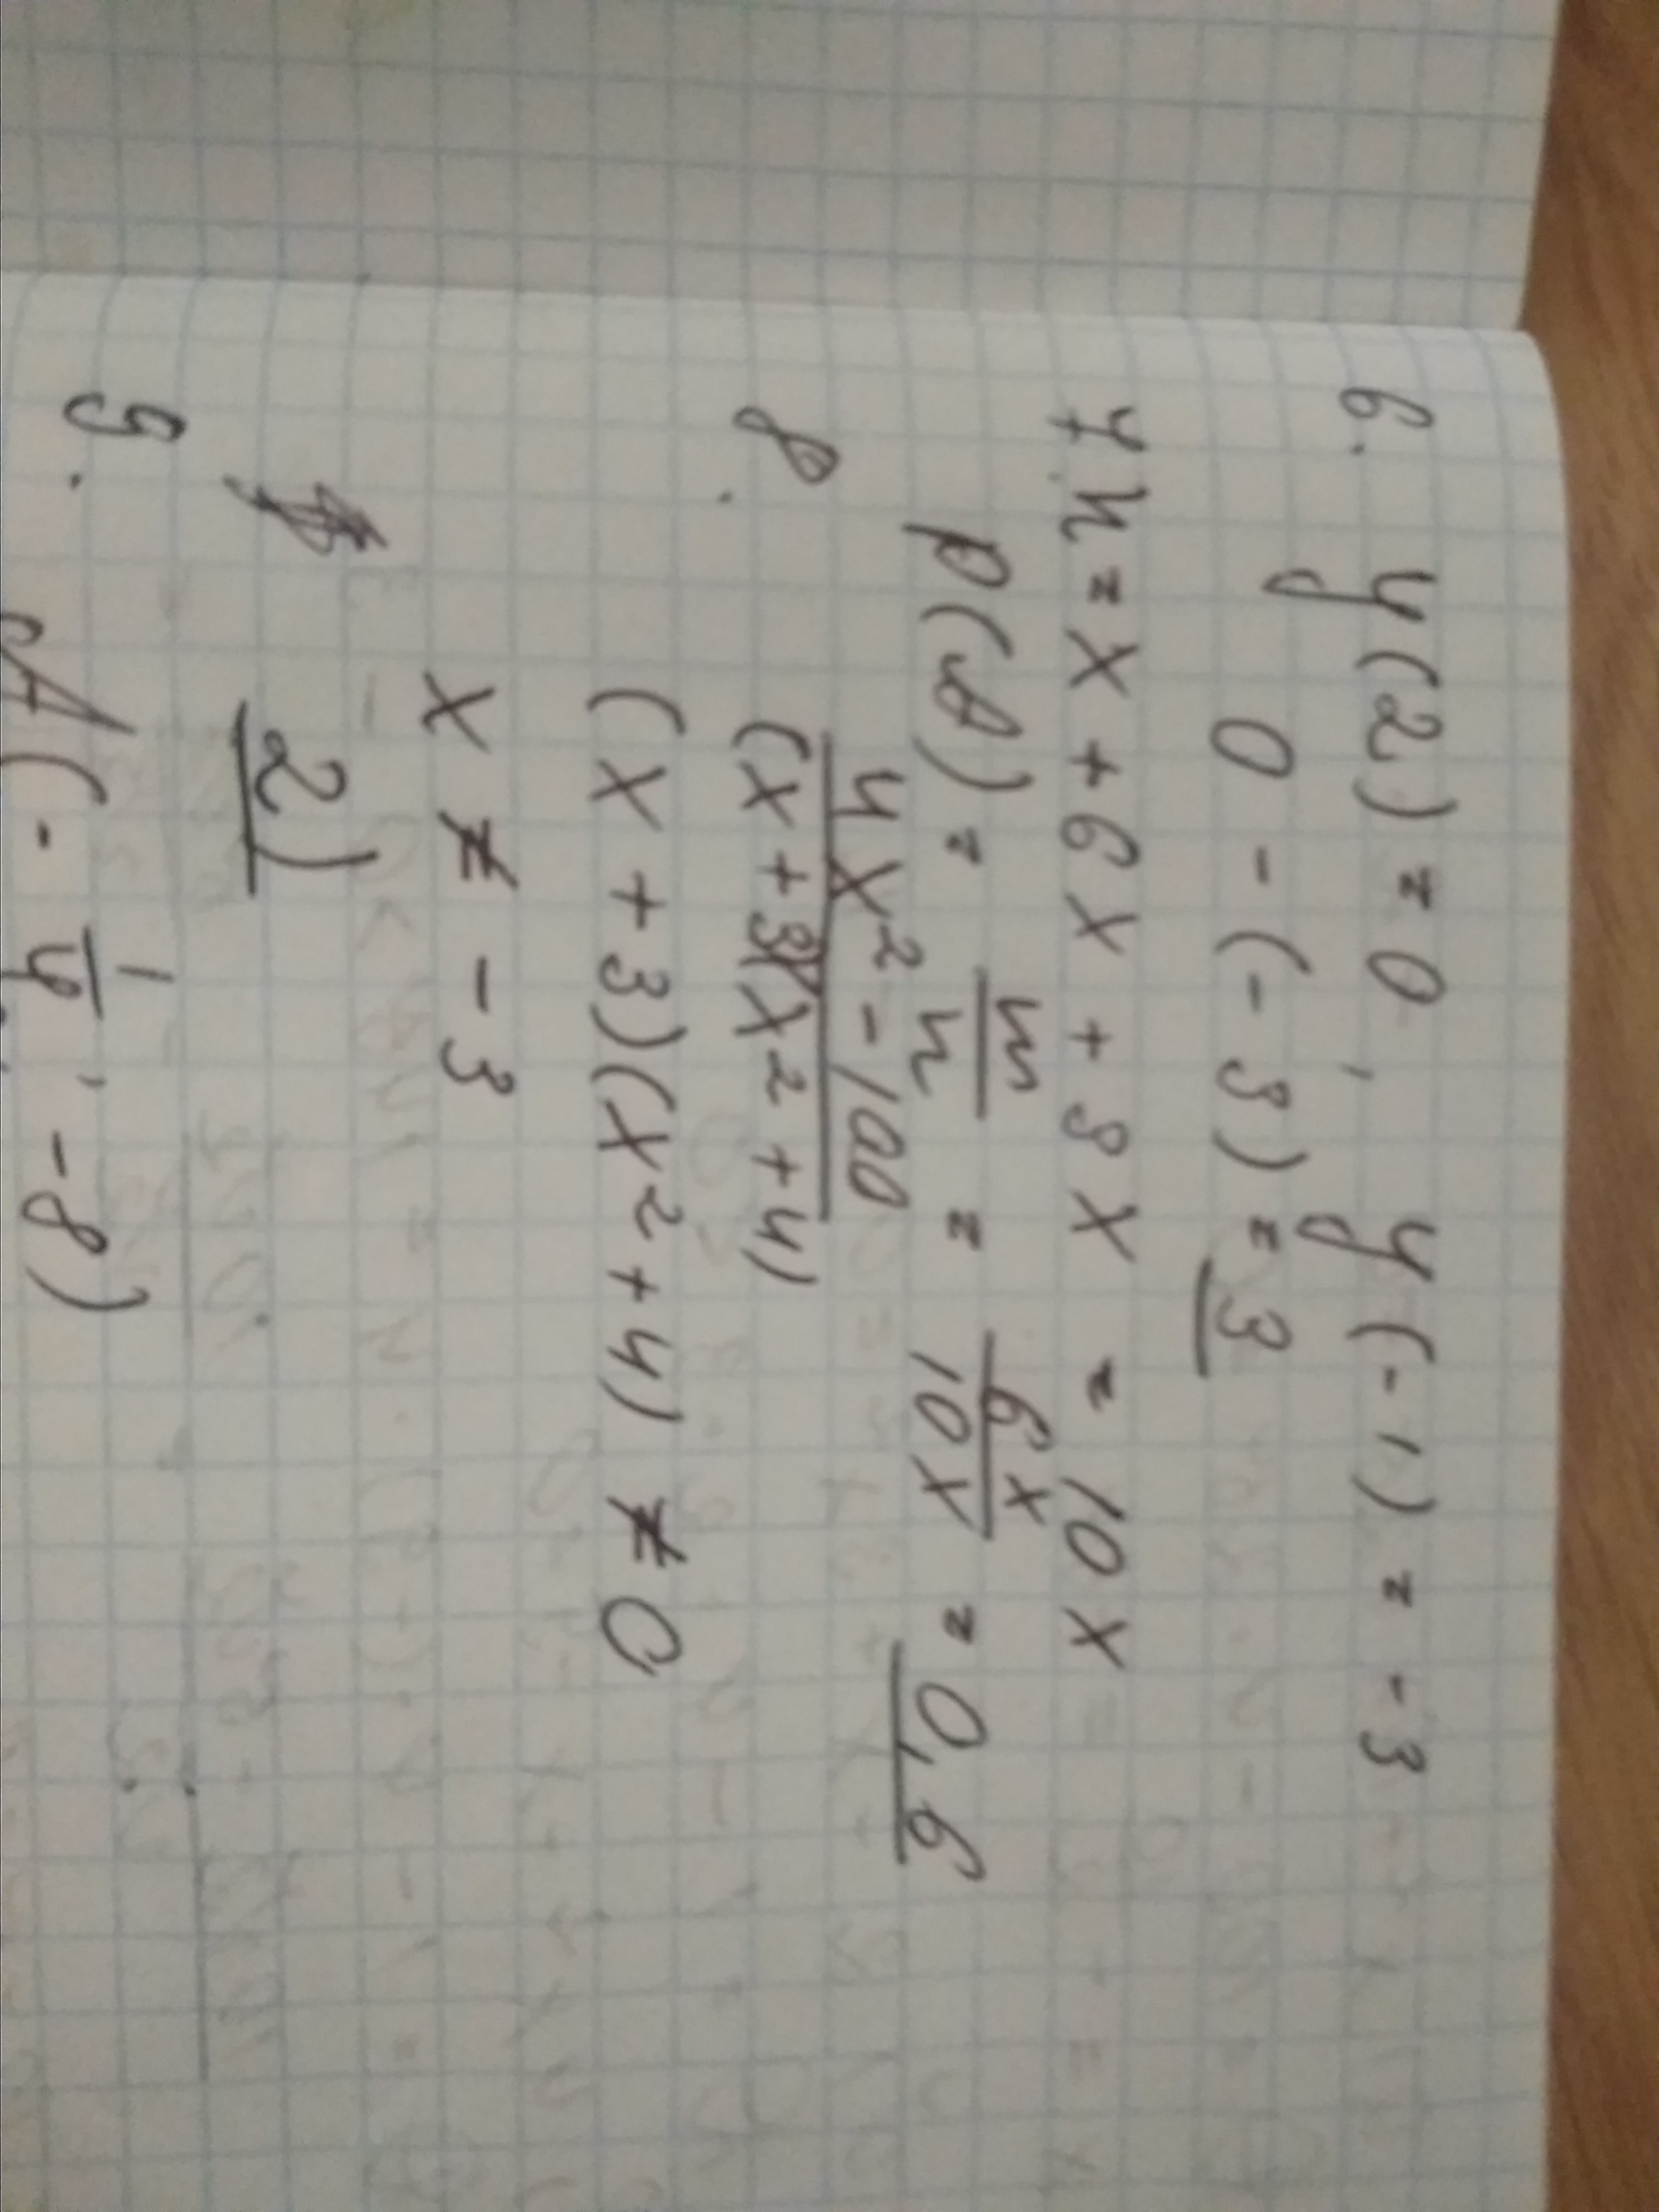 6. y(2) = 0, y(-1) = -3
0 - (-3) = 3
7. n = x + 6x + 3x = 10x
p(A) = m/n = 6x/10x = 0,6
8. (4x² - 100)/((x + 3)(x² + 4))
(x + 3)(x² + 4) ≠ 0
x ≠ -3
2)
9. A(-1/4; -8)